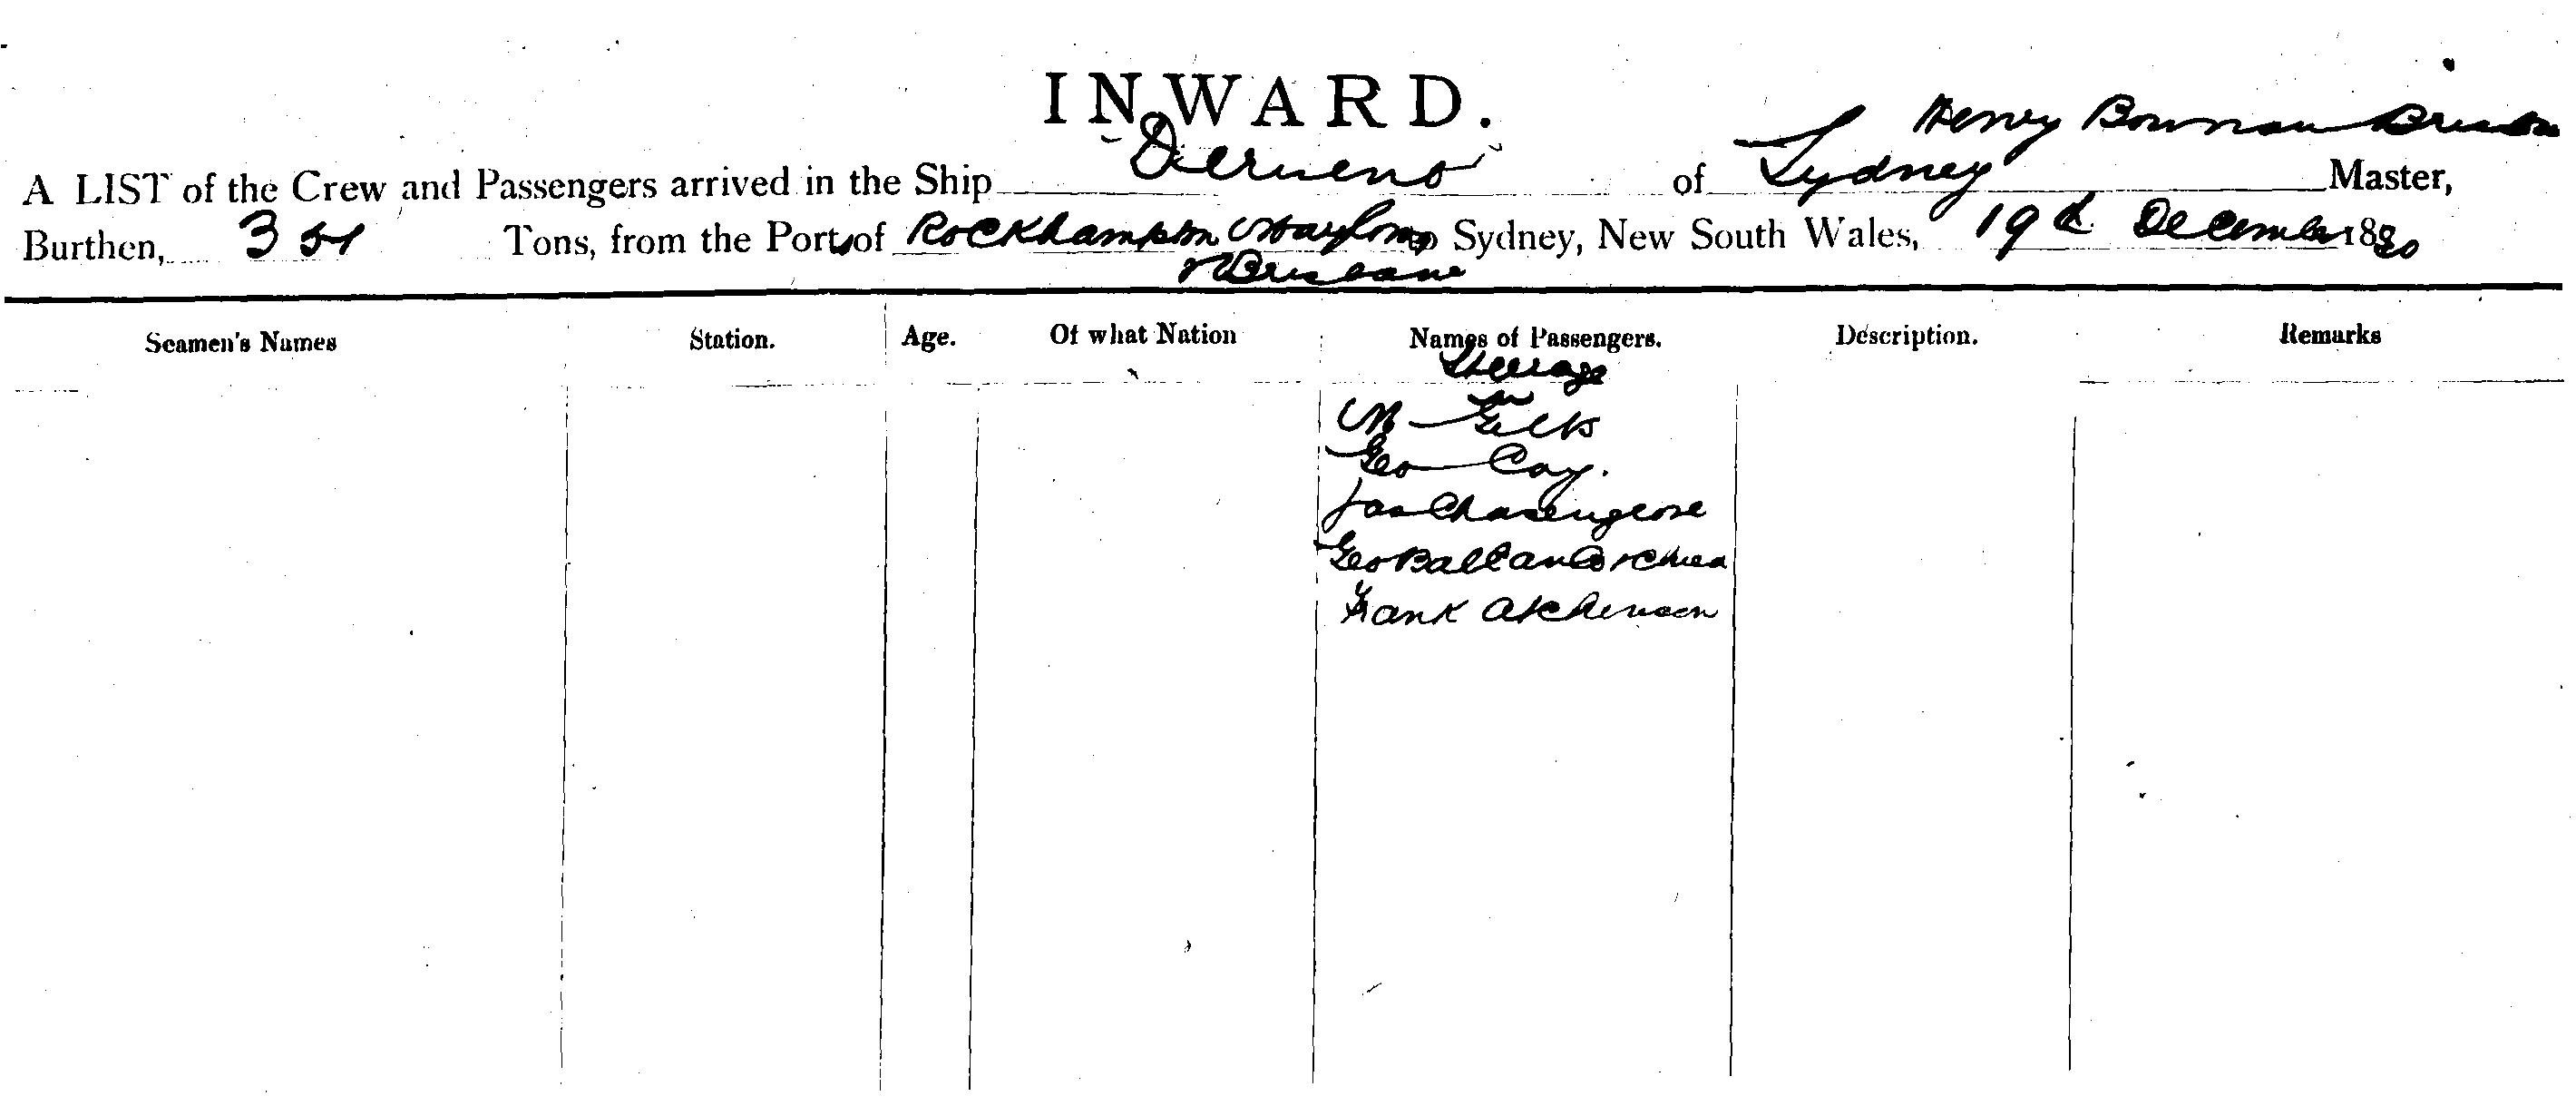 INWARD.
Henry Bowman
A LIST of the Crew and Passengers arrived in the Ship "Derwent" of Sydney Master,
Burthen, 351 Tons, from the Ports of Rockhampton to Sydney, New South Wales, 19th December 1880
& Brisbane
Seamen's Names Station. Age. Of what Nation Names of Passengers. Description. Remarks
Steerage
M
Geo Coy.
Jas
Geo
Frank Atchenson